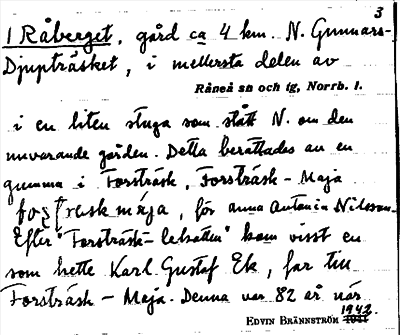 3
1 Råberget, gård ca 4 km. N. Gunnars-
Djupträsket, i mellersta delen av
Råneå sn och tg, Norrb. l.
i en liten stuga som stått N. om den
nuvarande gården. Detta berättades av en
gumma i Forsträsk, Forsträsk-Maja
för Anna Antonia Nilsson.
Efter "Forsträsk- " kom visst en
som hette Karl Gustaf Ek, far till
Forsträsk-Maja. Denna var 82 år när
1942.
EDVIN BRÄNNSTRÖM